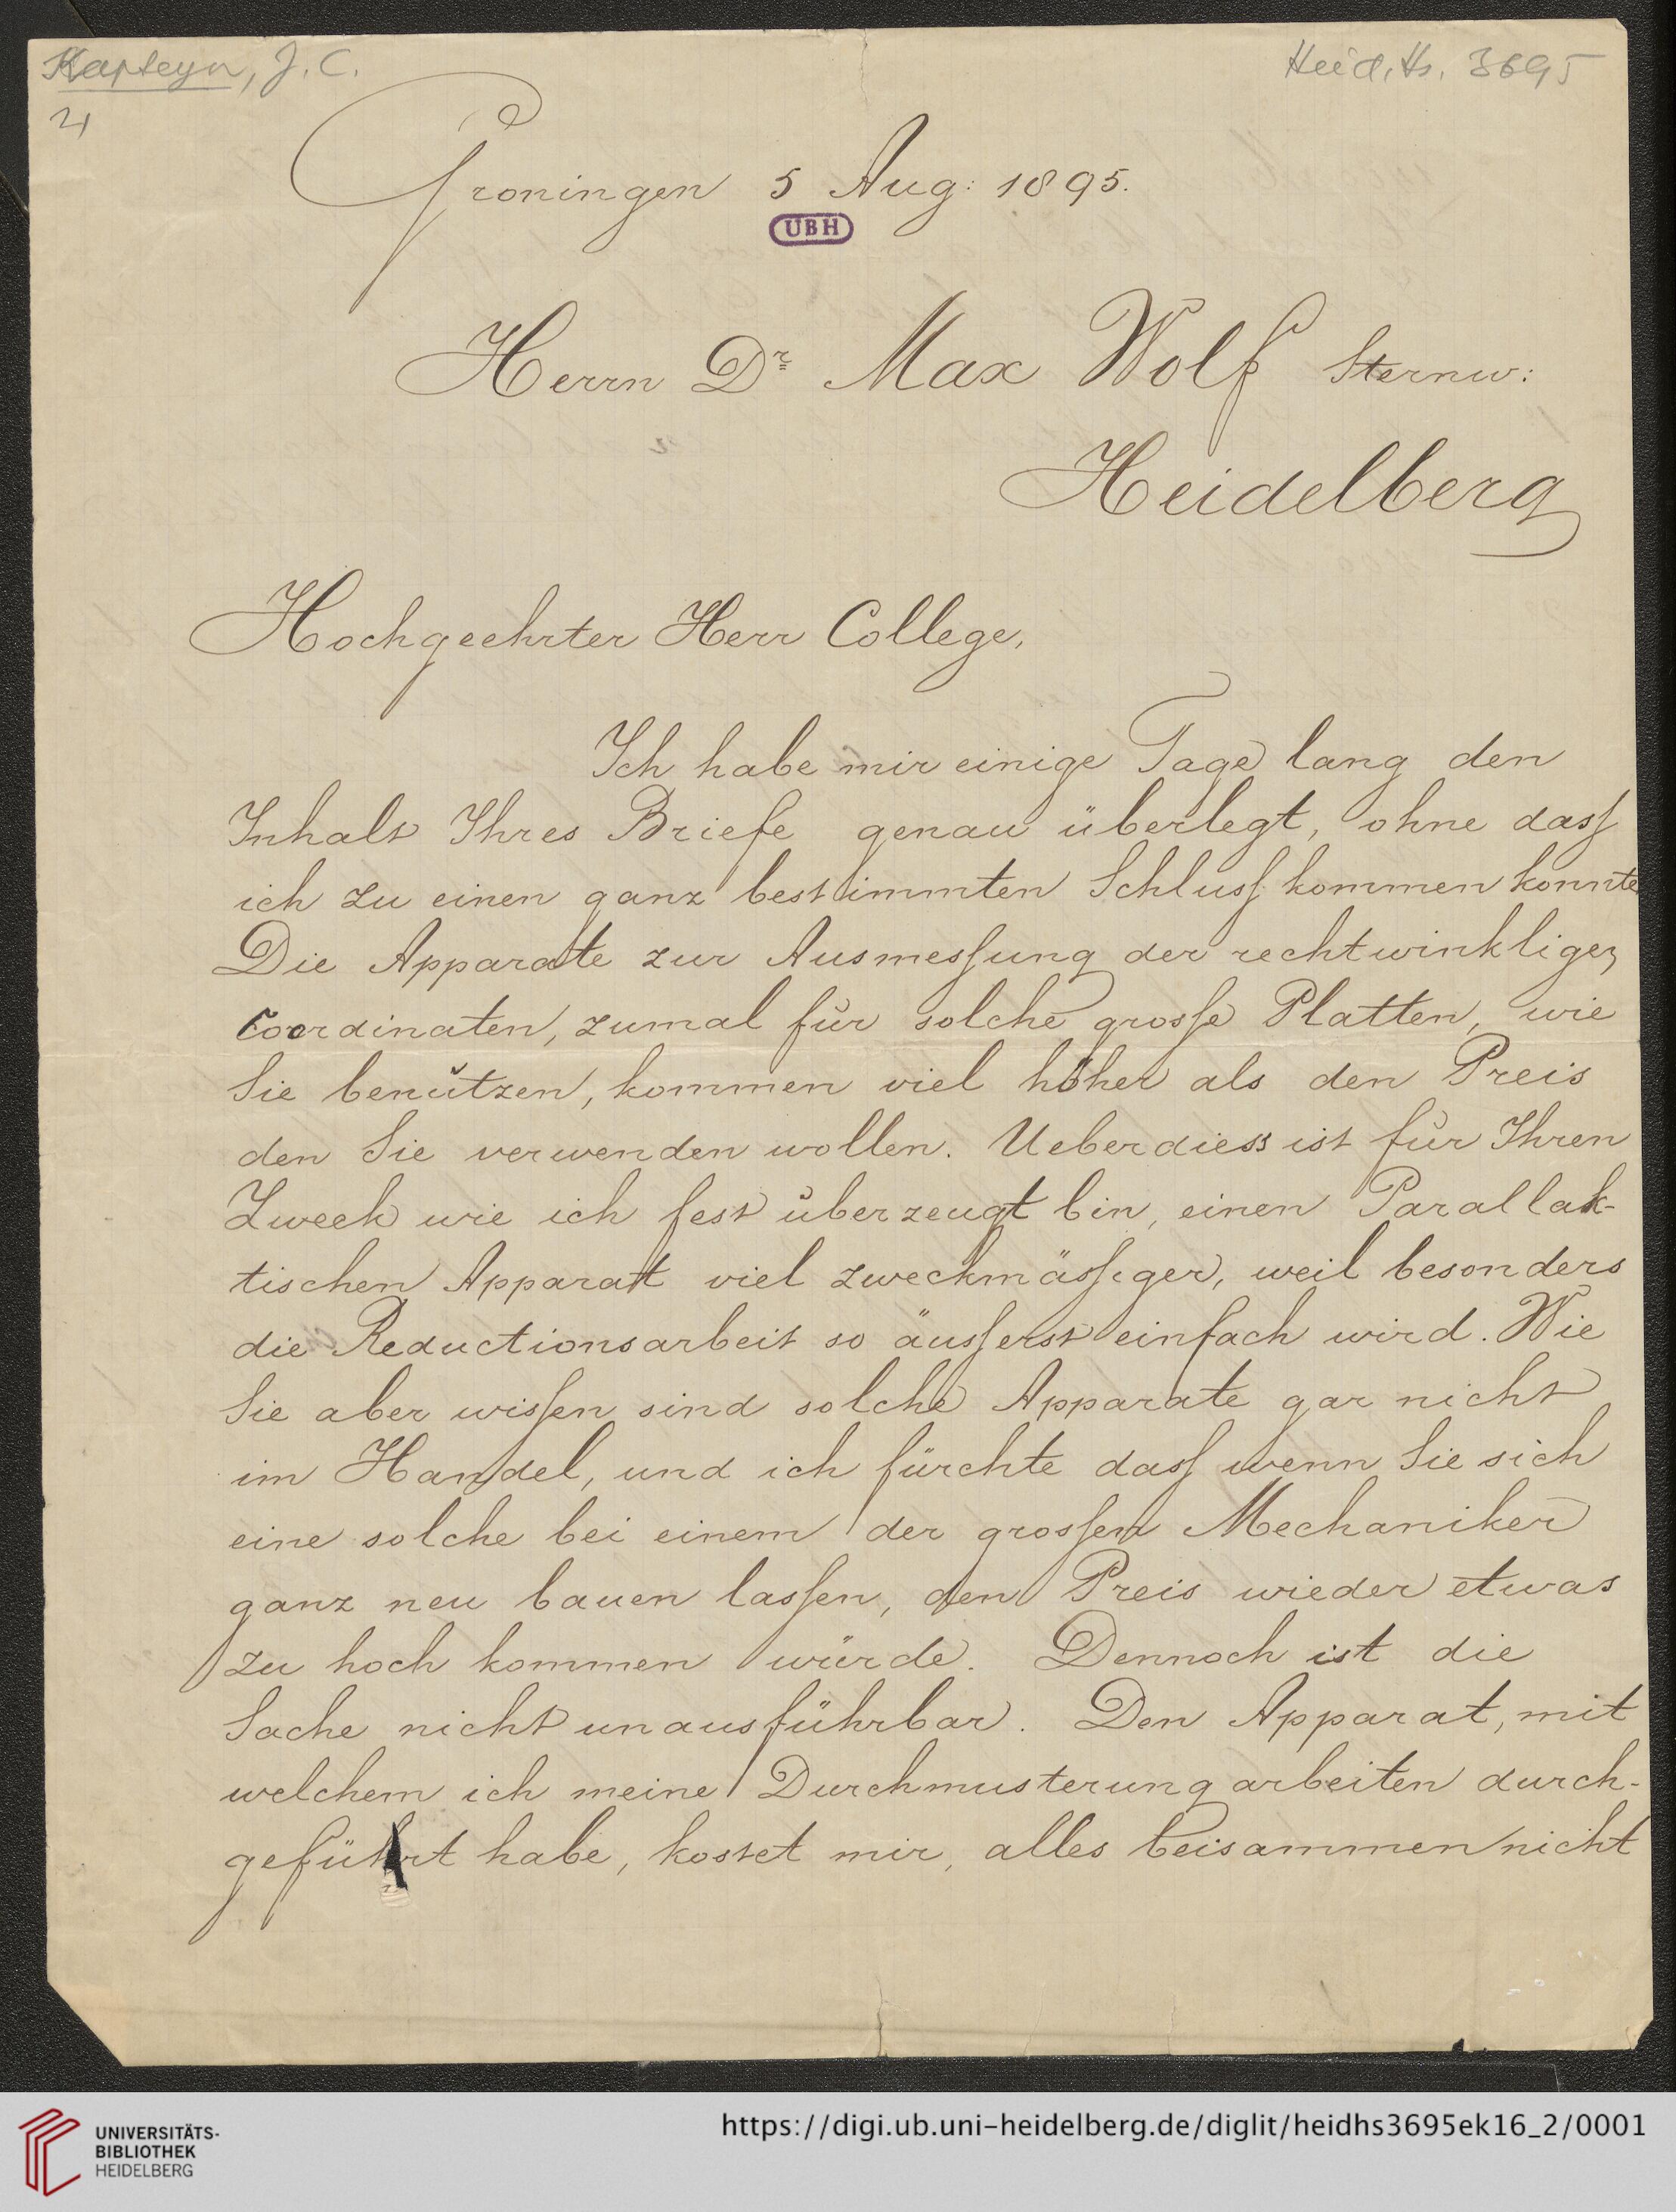 Kapteyn, J. C.
Heid. Hs. 3695
21
Groningen 5 Aug: 1895.
UBH
Herrn Dr Max Wolf Sternw:
Heidelberg
Hochgeehrter Herr College,
Ich habe mir einige Tage lang den
Inhalt Ihres Briefe genau überlegt, ohne dass
ich zu einen ganz bestimmten Schluss kommen konnte
Die Apparate zur Ausmessung der rechtwinkligen
Coordinaten, zumal für solche grosse Platten, wie
Sie benützen, kommen viel höher als den Preis
den Sie verwenden wollen. Ueberdiess ist für Ihren
Zweck wie ich fest überzeugt bin, einen Parallak-
tischen Apparatt viel zweckmässiger, weil besonders
die Reductionsarbeit so äusserst einfach wird. Wie
Sie aber wissen sind solche Apparate gar nicht
im Handel, und ich fürchte dass wenn Sie sich
eine solche bei einem der grossen Mechaniker
ganz neu bauen lassen, den Preis wieder etwas
zu hoch kommen würde. Dennoch ist die
Sache nicht unausführbar. Den Apparat, mit
welchem ich meine Durchmusterungarbeiten durch-
geführt habe, kostet mir, alles beisammen nicht
UNIVERSITÄTS-
BIBLIOTHEK
HEIDELBERG
https://digi.ub.uni-heidelberg.de/diglit/heidhs3695ek16_2/0001